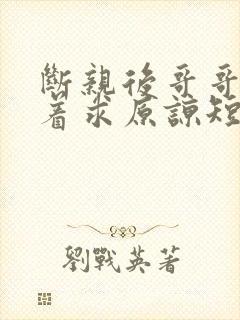 斷親後哥哥
着求原諒短
劉戰英著